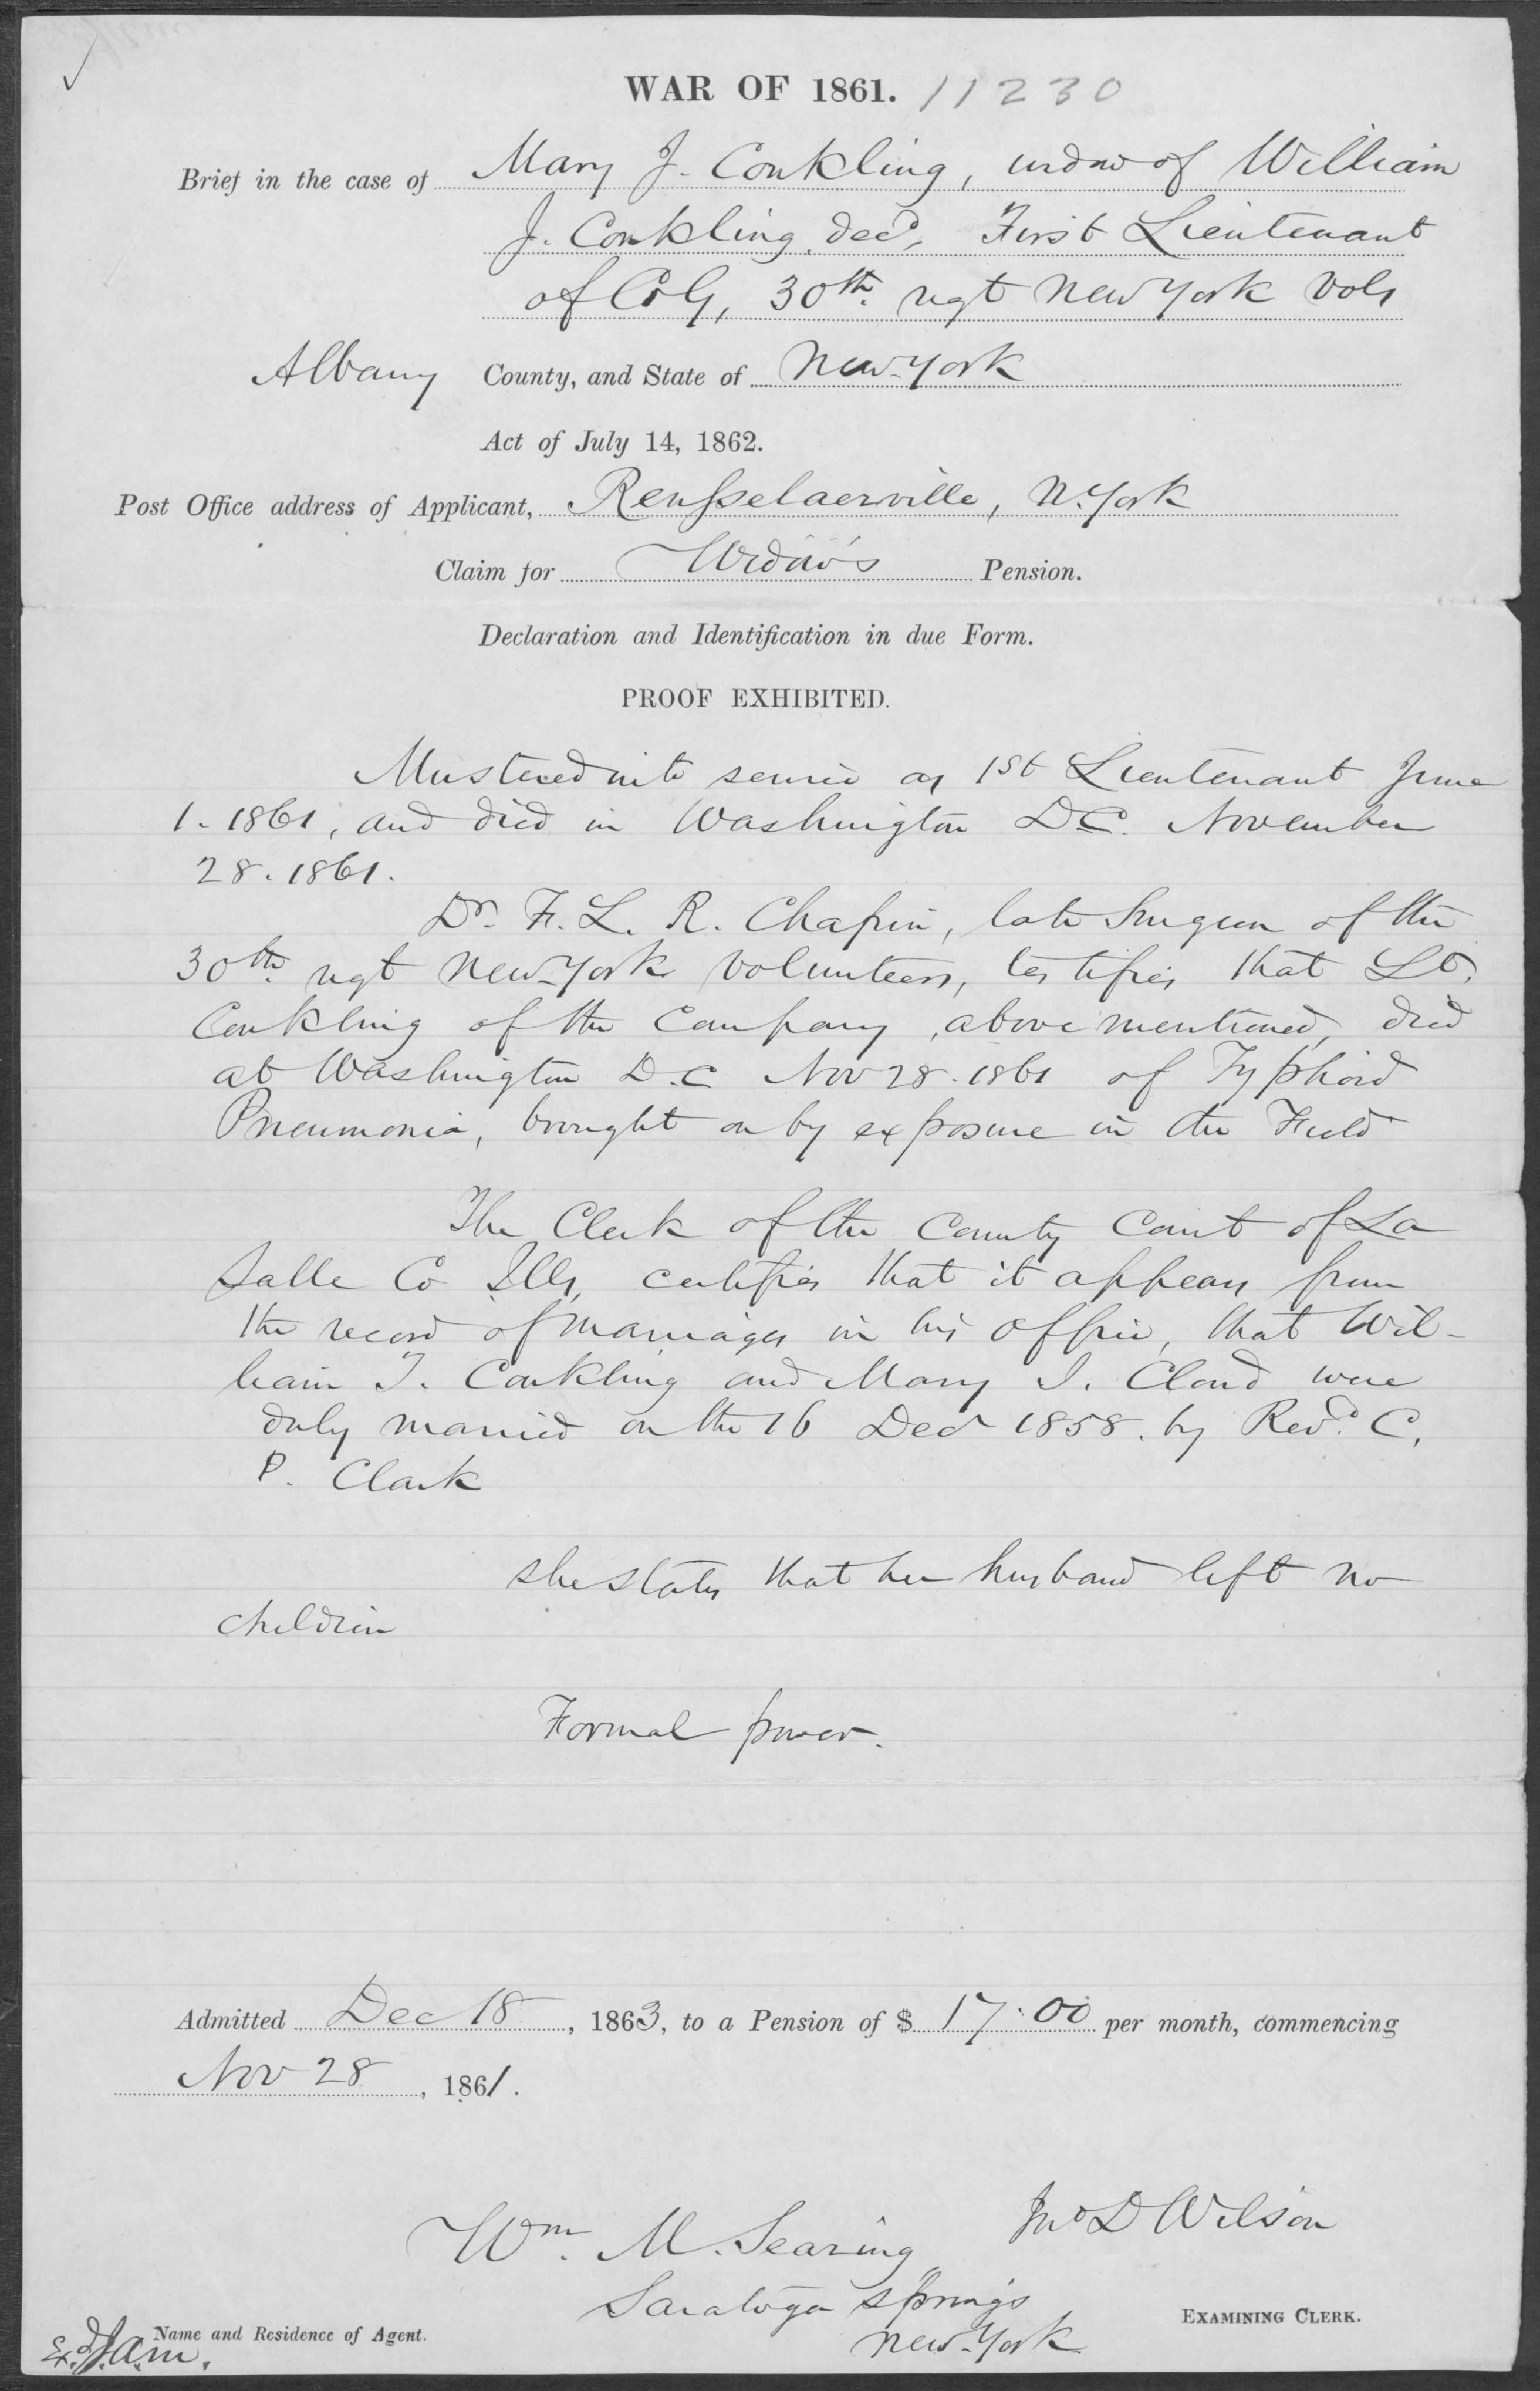 WAR OF 1861. 11230
Brief in the case of Mary J. Conkling, widow of William
J. Conkling, decd, First Lieutenant
of Co G, 30th regt New York Vols
Albany County, and State of New York
Act of July 14, 1862.
Post Office address of Applicant, Rensselaerville, N. York
Claim for Widow's Pension.
Declaration and Identification in due Form.
PROOF EXHIBITED.
Mustered into service as 1st Lieutenant June
1. 1861, and died in Washington D.C. November
28. 1861.
Dr. F. L. R. Chapin, late Surgeon of the
30th regt New York Volunteers, testifies that Lt.
Conkling of the Company, above mentioned, died
at Washington D.C Nov 28. 1861 of Typhoid
Pneumonia, brought on by exposure in the Field
The Clerk of the County Court of La
Salle Co Ills, certifies that it appears from
the record of marriages in his office, that Wil-
liam J. Conkling and Mary J. Cloud were
duly married on the 16 Decr 1858. by Revd. C.
P. Clark
she states that her husband left no
children
Formal power.
Admitted Dec 18, 1863, to a Pension of $ 17.00 per month, commencing
Nov 28, 1861.
Jno D Wilson
Wm. M. Searing
Saratoga Springs
New-York
EXAMINING CLERK.
Name and Residence of Agent.
Exd J.A.m.